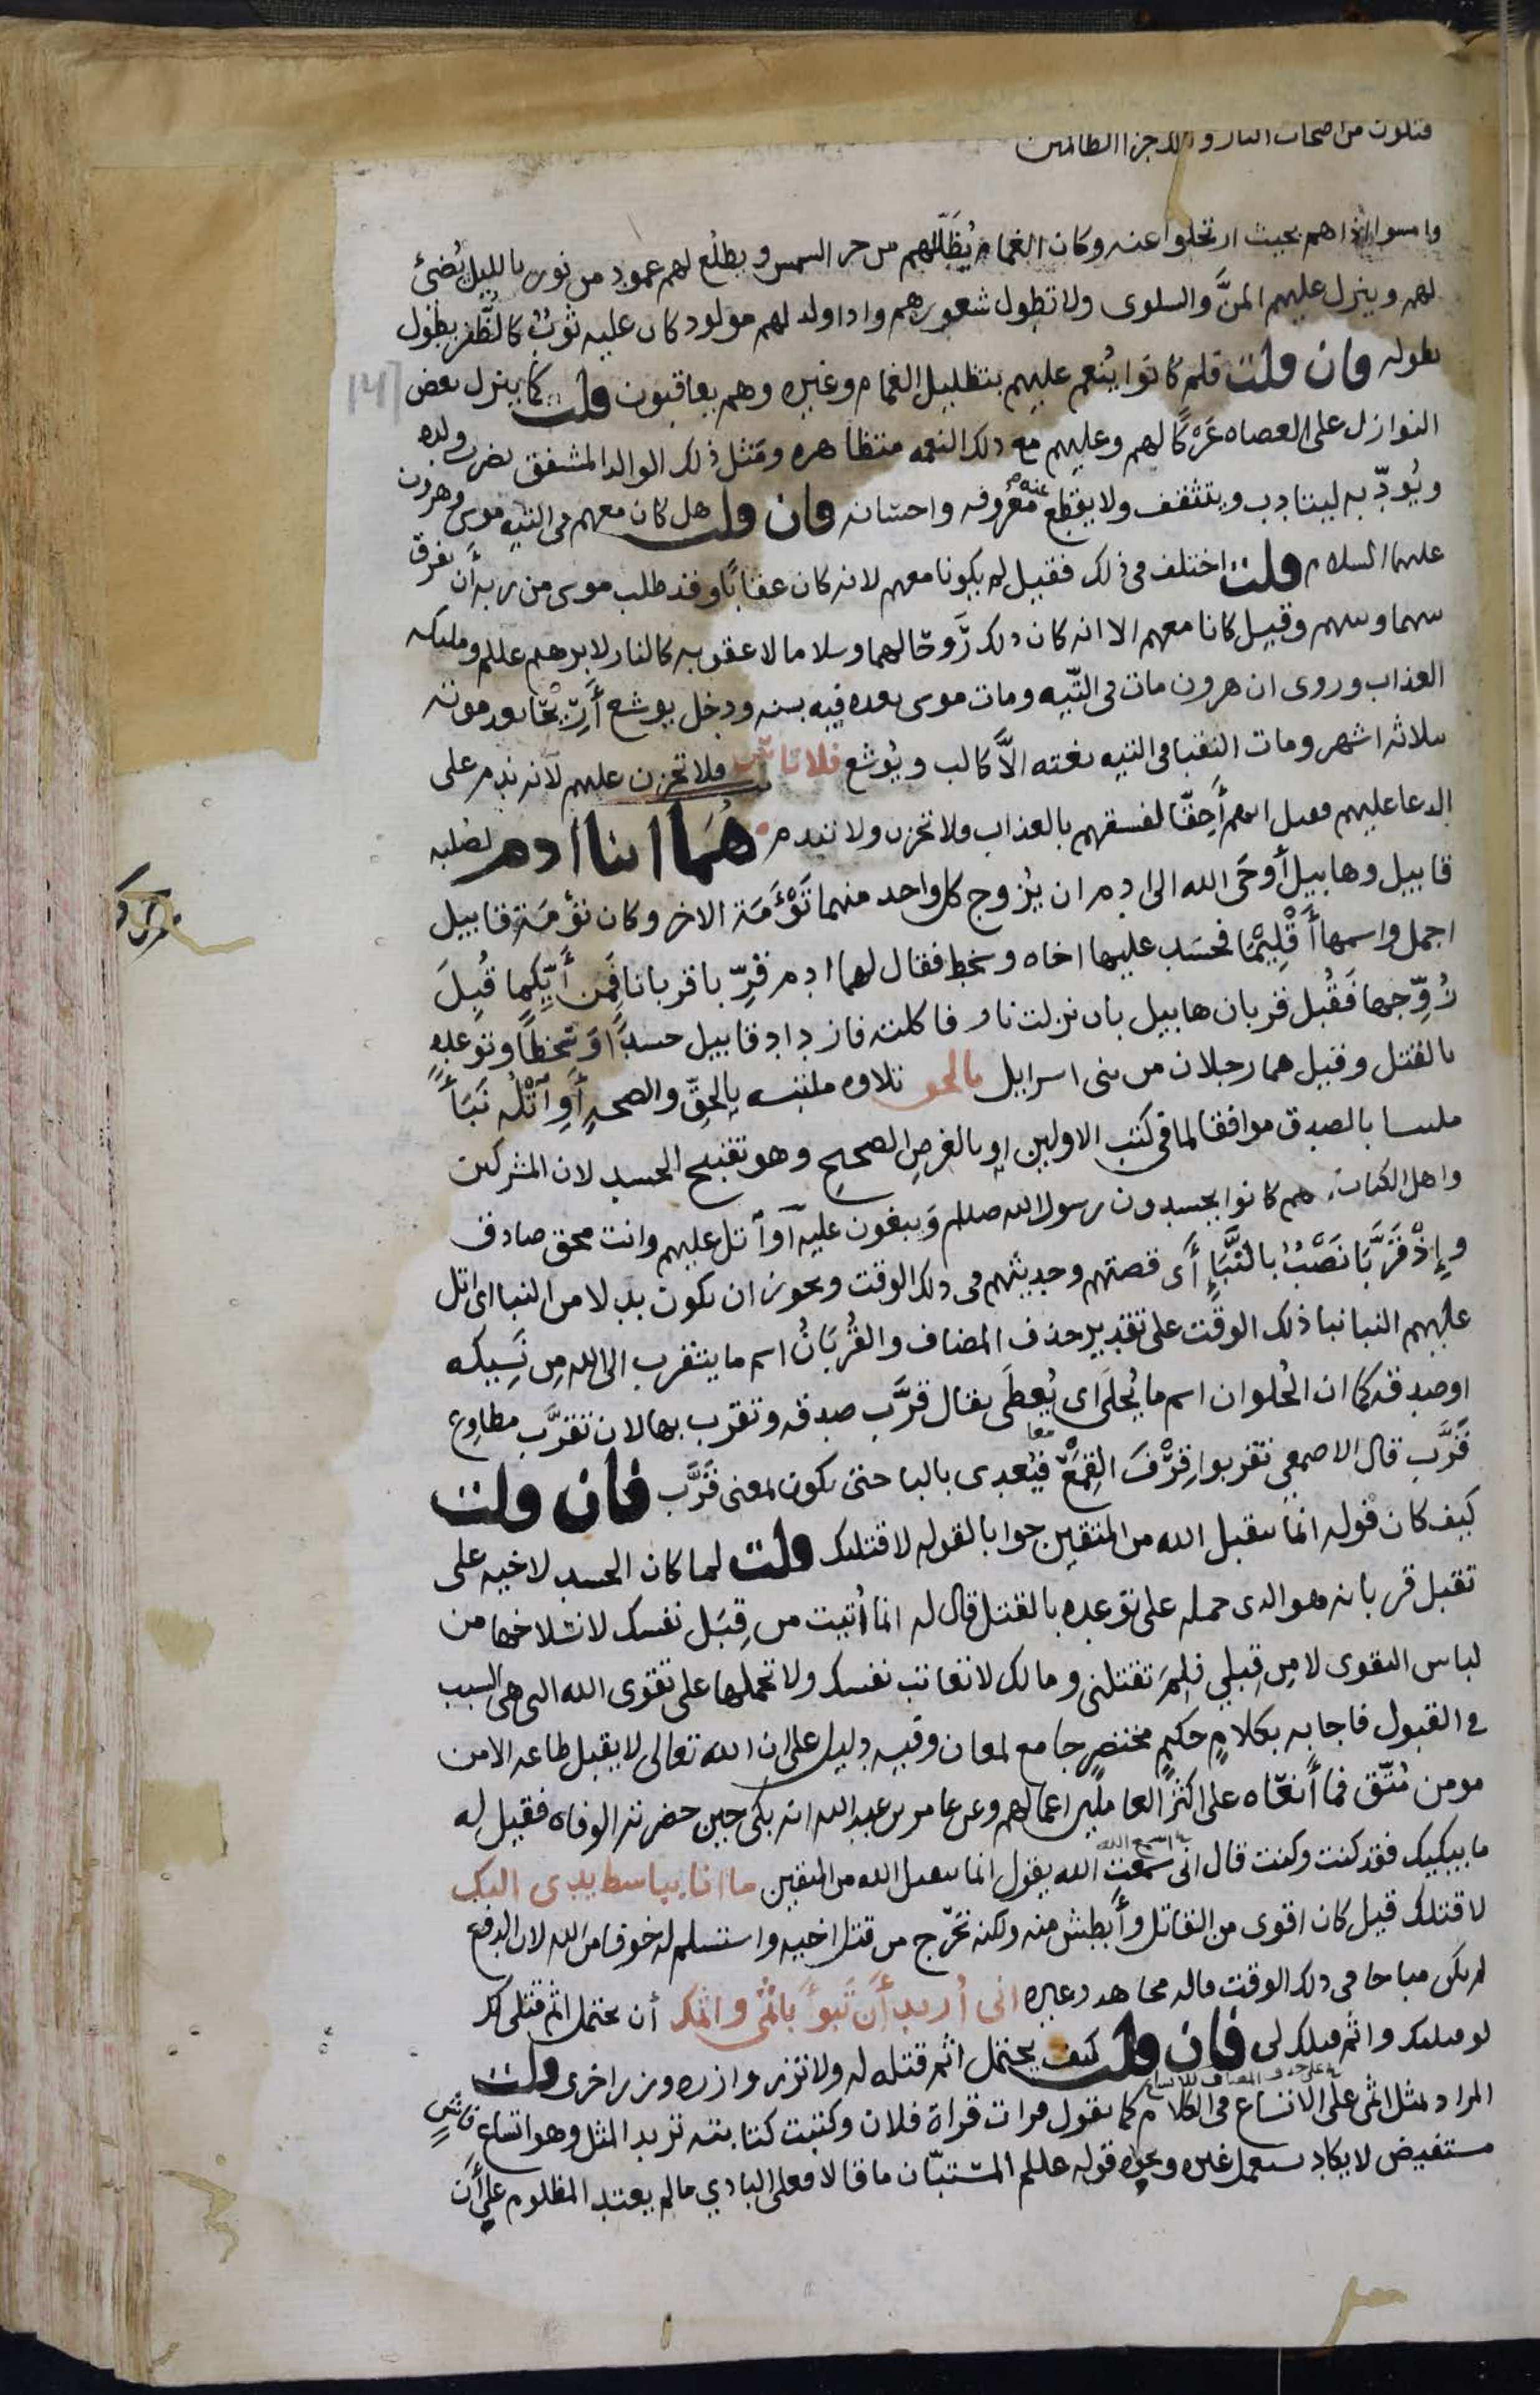 فتكون من اصحاب النار وذلك جزاا الظالمين
وامسوا اذا هم بحيث ارتحلوا عنه وكان الغمام يُظَلّلهم من حر الشمس ويطلُع لهم عمود من نور بالليل يُضئ
لهم وينزل عليهم المنَّ والسلوى ولا تطول شعورهم واذا ولد لهم مولود كان عليه ثوبٌ كالظُّفر يطول
بطوله فان قلت فلم كانوا يُنعم عليهم بتظليل الغمام وغيره وهم يعاقبون قلت كما ينزل بعض
النوازل على العصاه عَرْكًا لهم وعليهم مع ذلك النعمه متظاهره ومَثل ذلك الوالد المشفق يضرب ولده
ويُودّبه ليتادب ويتثقف ولا يقطع عنه معروفه واحسانه فان قلت هل كان معهم في التيه موسى وهرون
عليهما السلام قلت اختلف في ذلك فقيل لم يكونا معهم لانه كان عقابًا وقد طلب موسى من ربه أن يفرق
بينهما وبينهم وقيل كانا معهم الا انه كان ذلك رَوحًا لهما وسلاما لا عقوبه كالنار لابرهيم عللم وملىكه
العذاب وروى ان هرون مات في التّيه ومات موسى بعده فيه بسنه ودخل يوشع أَرِيْحَا بعد موته
بثلاثه اشهر ومات النقبا في التيه بغته الاَّ كالب ويُوشع فلا تاس فلا تحزن عليهم لأنه ندم على
الدعا عليهم فقيل انهم أَحِقّا لفسقهم بالعذاب فلا تحزن ولا تندم هُمَا ابنا ادم لصلبه
قابيل وهابيل أَوحَى الله الى ادم ان يُزوج كل واحد منهما تَوْءَمَة الاخر وكان تؤمَة قابيل
اجمل واسمها أَقْلِيْمَا فحسَد عليها اخاه وسخط فقال لهما ادم قرِّبا قربانا فمن أَيّكما قُبِلَ
زُوِّجها فَقُبل قربان هابيل بان نزلت نار فاكلته فازداد قابيل حسدًا وَسَخطًا وتوعده
بالقتل وقيل هما رجلان من بني اسرايل بالحق تلاوه ملتبسه بِالحقّ والصحهِ أَوِ آتْلُه نَبَأً
ملتبسا بالصدق موافقا لما في كتب الاولين او بالغرض الصحيح وهو تقبيح الحسد لان المشركين
واهل الكتاب هم كانوا يحسدون رسول الله صللم وَيبغون عليه اَو آتل عليهم وانت محق صادق
وإِذْ قَرَّبَا نَصْبٌ بالنَّبَإِ أَى قصتهم وحديثهم في ذلك الوقت ويجوز ان يكون بدلا من النبا اى اتل
عليهم النبا نبا ذلك الوقت على تقدير حذف المضاف والقُربَانُ اسم ما يتقرب الى الله مِن نَسِيكه
او صدقه كما ان الحُلوان اسم ما يُحلَى اى يُعطَى يقال قرَّب صدقه وتقرب بها لان تقرَّب مطاوع
قَرَّب قال الاصمعي تقربوا قِرْفَ القِمَعْ معا فيُعدى بالبا حتى يكون بمعنى قَرَّب فان قلت
كيف كان قوله انما يتقبل الله من المتقين جوابا لقوله لاقتلنك قلت لما كان الحسد لاخيه على
تقبل قربانه هو الذى حمله على توعده بالقتل قال له انما أُتيت من قِبَل نفسك لانسلاخها من
لباس التقوى لا مِن قِبلي فلِمَ تقتلني ومالك لا تعاتب نفسك ولا تحملها على تقوى الله التى هى السبب
في القبول فاجابه بكلامٍ حكيمٍ مختصرٍ جامع لمعان وفيه دليل على ان الله تعالى لا يقبل طاعه الا من
مومن مُتّق فما أَنعَاه على اكثرِ العاملين اعمالهم وعن عامر بن عبد الله انه بكى حين حضرته الوفاه فقيل له
ما يبكيك فقد كنت وكنت قال انى سمعت الله يقول انما يتقبل الله من المتقين ما انا بباسط يدى اليك
لاقتلك قيل كان اقوى من القاتل وأَبطش منه ولكنه تحرّج من قتل اخيه واستسلم له خوفا من الله لان الدفع
لم يكن مباحا في ذلك الوقت قاله مجاهد وغيره انى أُريد أَن تَبوأَ بإثمي واثمك أن تحتمل اثم قتلى لك
لو قتلتك واثم قتلك لى فان قلت كيف يحتمل اثم قتله له ولا تزر وازره وزر اخرى قلت
المراد بمثل اثمى على الاتساع في الكلام كما تقول قرات قراة فلان وكتبت كتابته تريد المثل وهو اتساع فاش
مستفيض لا يكاد يستعمل غيره ونحوه قوله عللم المستبّان ما قالا فعلى البادي ما لم يعتد المظلوم على أَنَّ